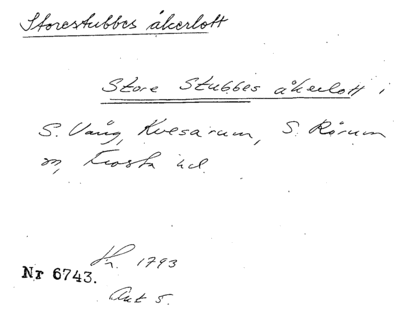 Storestubbes åkerlott
Store Stubbes åkerlott i
S. Vång, Kvesarum, S. Rörum
sn, Frosta hd.
H. 1793
Nr 6743.
Akt 5.